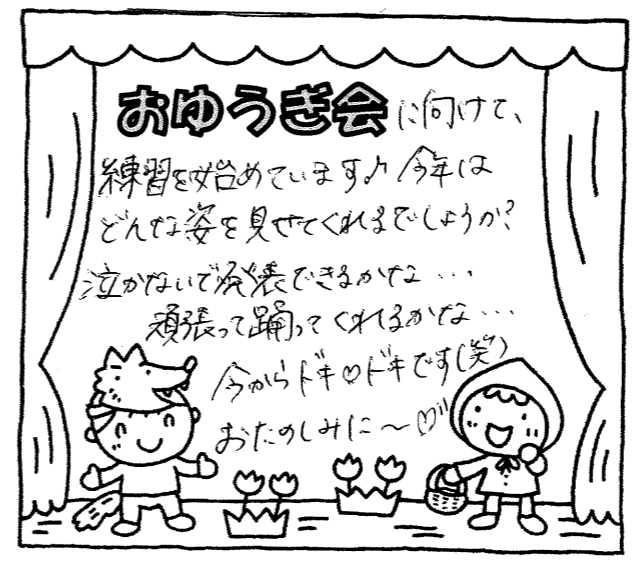 おゆうぎ会に向けて、
練習を始めています♪ 今年は
どんな姿を見せてくれるでしょうか?
泣かないで発表できるかな…
頑張って踊ってくれるかな…
今からドキ♡ドキです(笑)
おたのしみに〜♡